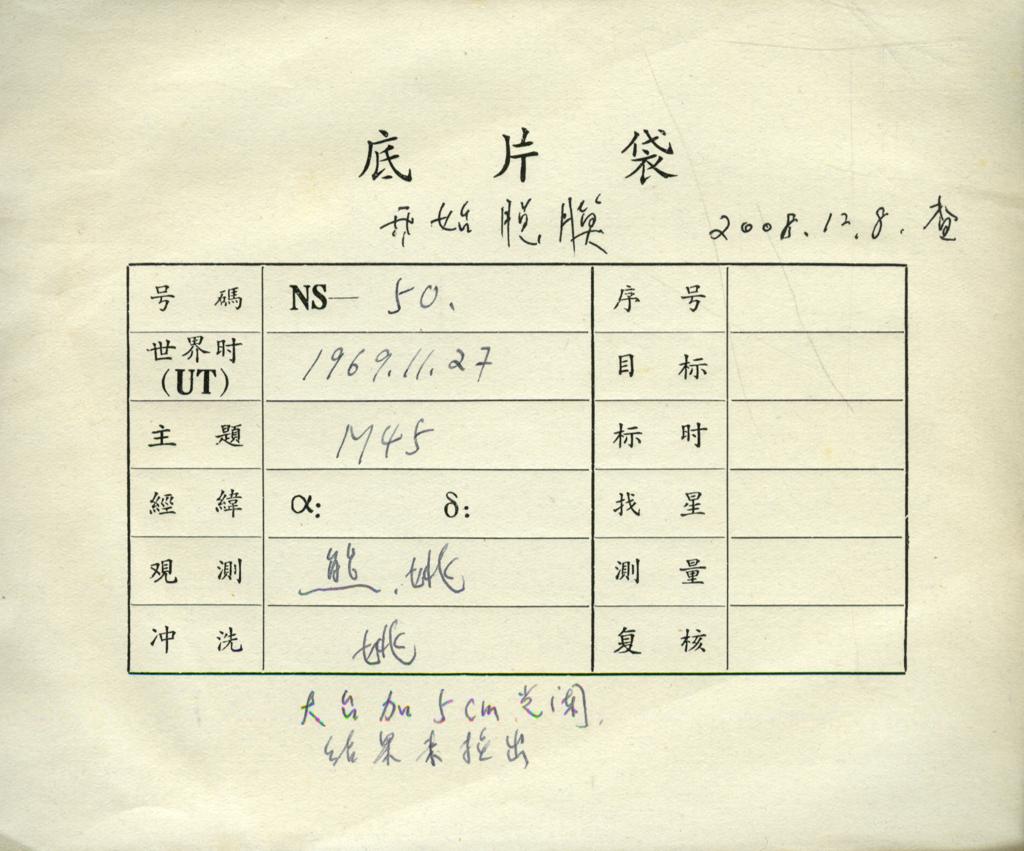 底 片 袋
开始脱膜 2008.12.8. 查
号 碼 NS— 50. 序 号
世界时 (UT) 1969.11.27 目 标
主 題 M45 标 时
經 緯 α: δ: 找 星
观 測 熊.姚 測 量
冲 洗 姚 复 核
大台加5cm光阑.
结果未拴出